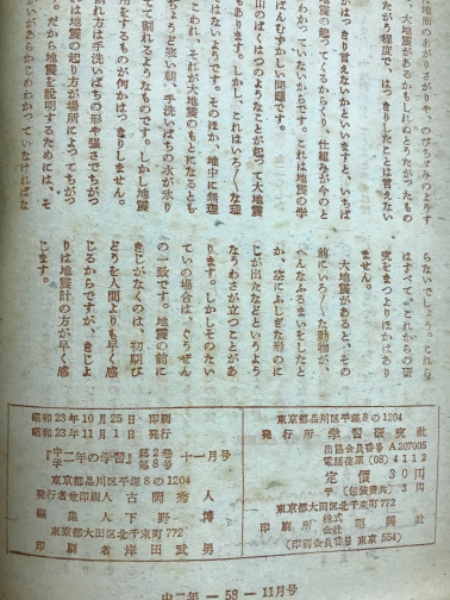 地面のあがりさがりや、のびちぢみのようす
、大地震があるかもしれぬとうたがつたもの
たがら程度で、はつきりしたことは言えない
がはつきり言えないかといいますと、いちば
地震の起つてくるからくり、仕組みが今のと
わかつていないからです。これは地震の学
ばんむずかしい問題です。
山のばくはつのようなことが起つて大地震
もあります。しかし、これはいろ〳〵な理
ではないようです。そのほか、地中に無理
こわれ、それが大地震のもとになるとも
ちようど寒い朝、手洗いばちの水が氷り
てて割れるようなものです。しかし地震
用をするものが何かはつきりしません。
割れ方は手洗いばちの形や強さでちがつ
に地震の起り方が場所によつてちがつ
。だから地震を説明するためには、そ
かがあらかじめわかつていなければな
らないでしよう。これら
はすべて、これからの研
究をまつよりほかはあり
ません。
大地震があると、その
前にいろ〳〵な動物が、
へんなふるまいをしたと
か、空にふしぎな形のに
じが出たなどというよう
なうわさが立つことがあ
ります。しかしそのたい
ていの場合は、ぐうぜん
の一致です。地震の前に
きじがなくのは、初期び
どうを人間よりも早く感
じるからですが、きじよ
りは地震計の方が早く感
じます。
昭和23年10月25日 印刷
昭和23年11月1日 発行
『中学二年の学習』第2巻第8号 十一月号
東京都品川区平塚8の1204
発行者兼印刷人 古岡秀人
編集人 下野博
東京都大田区北千束町772
印刷者 岸田武男
東京都品川区平塚8の1204
発行所 学習研究社
出協会員番号 A207005
電話荏原(08)4112
定価 30円
〒(包装費共)3円
東京都大田区北千束町772
印刷所 株式会社 明興社
(印刷会員番号 東京 554)
中二年 — 58 — 11月号